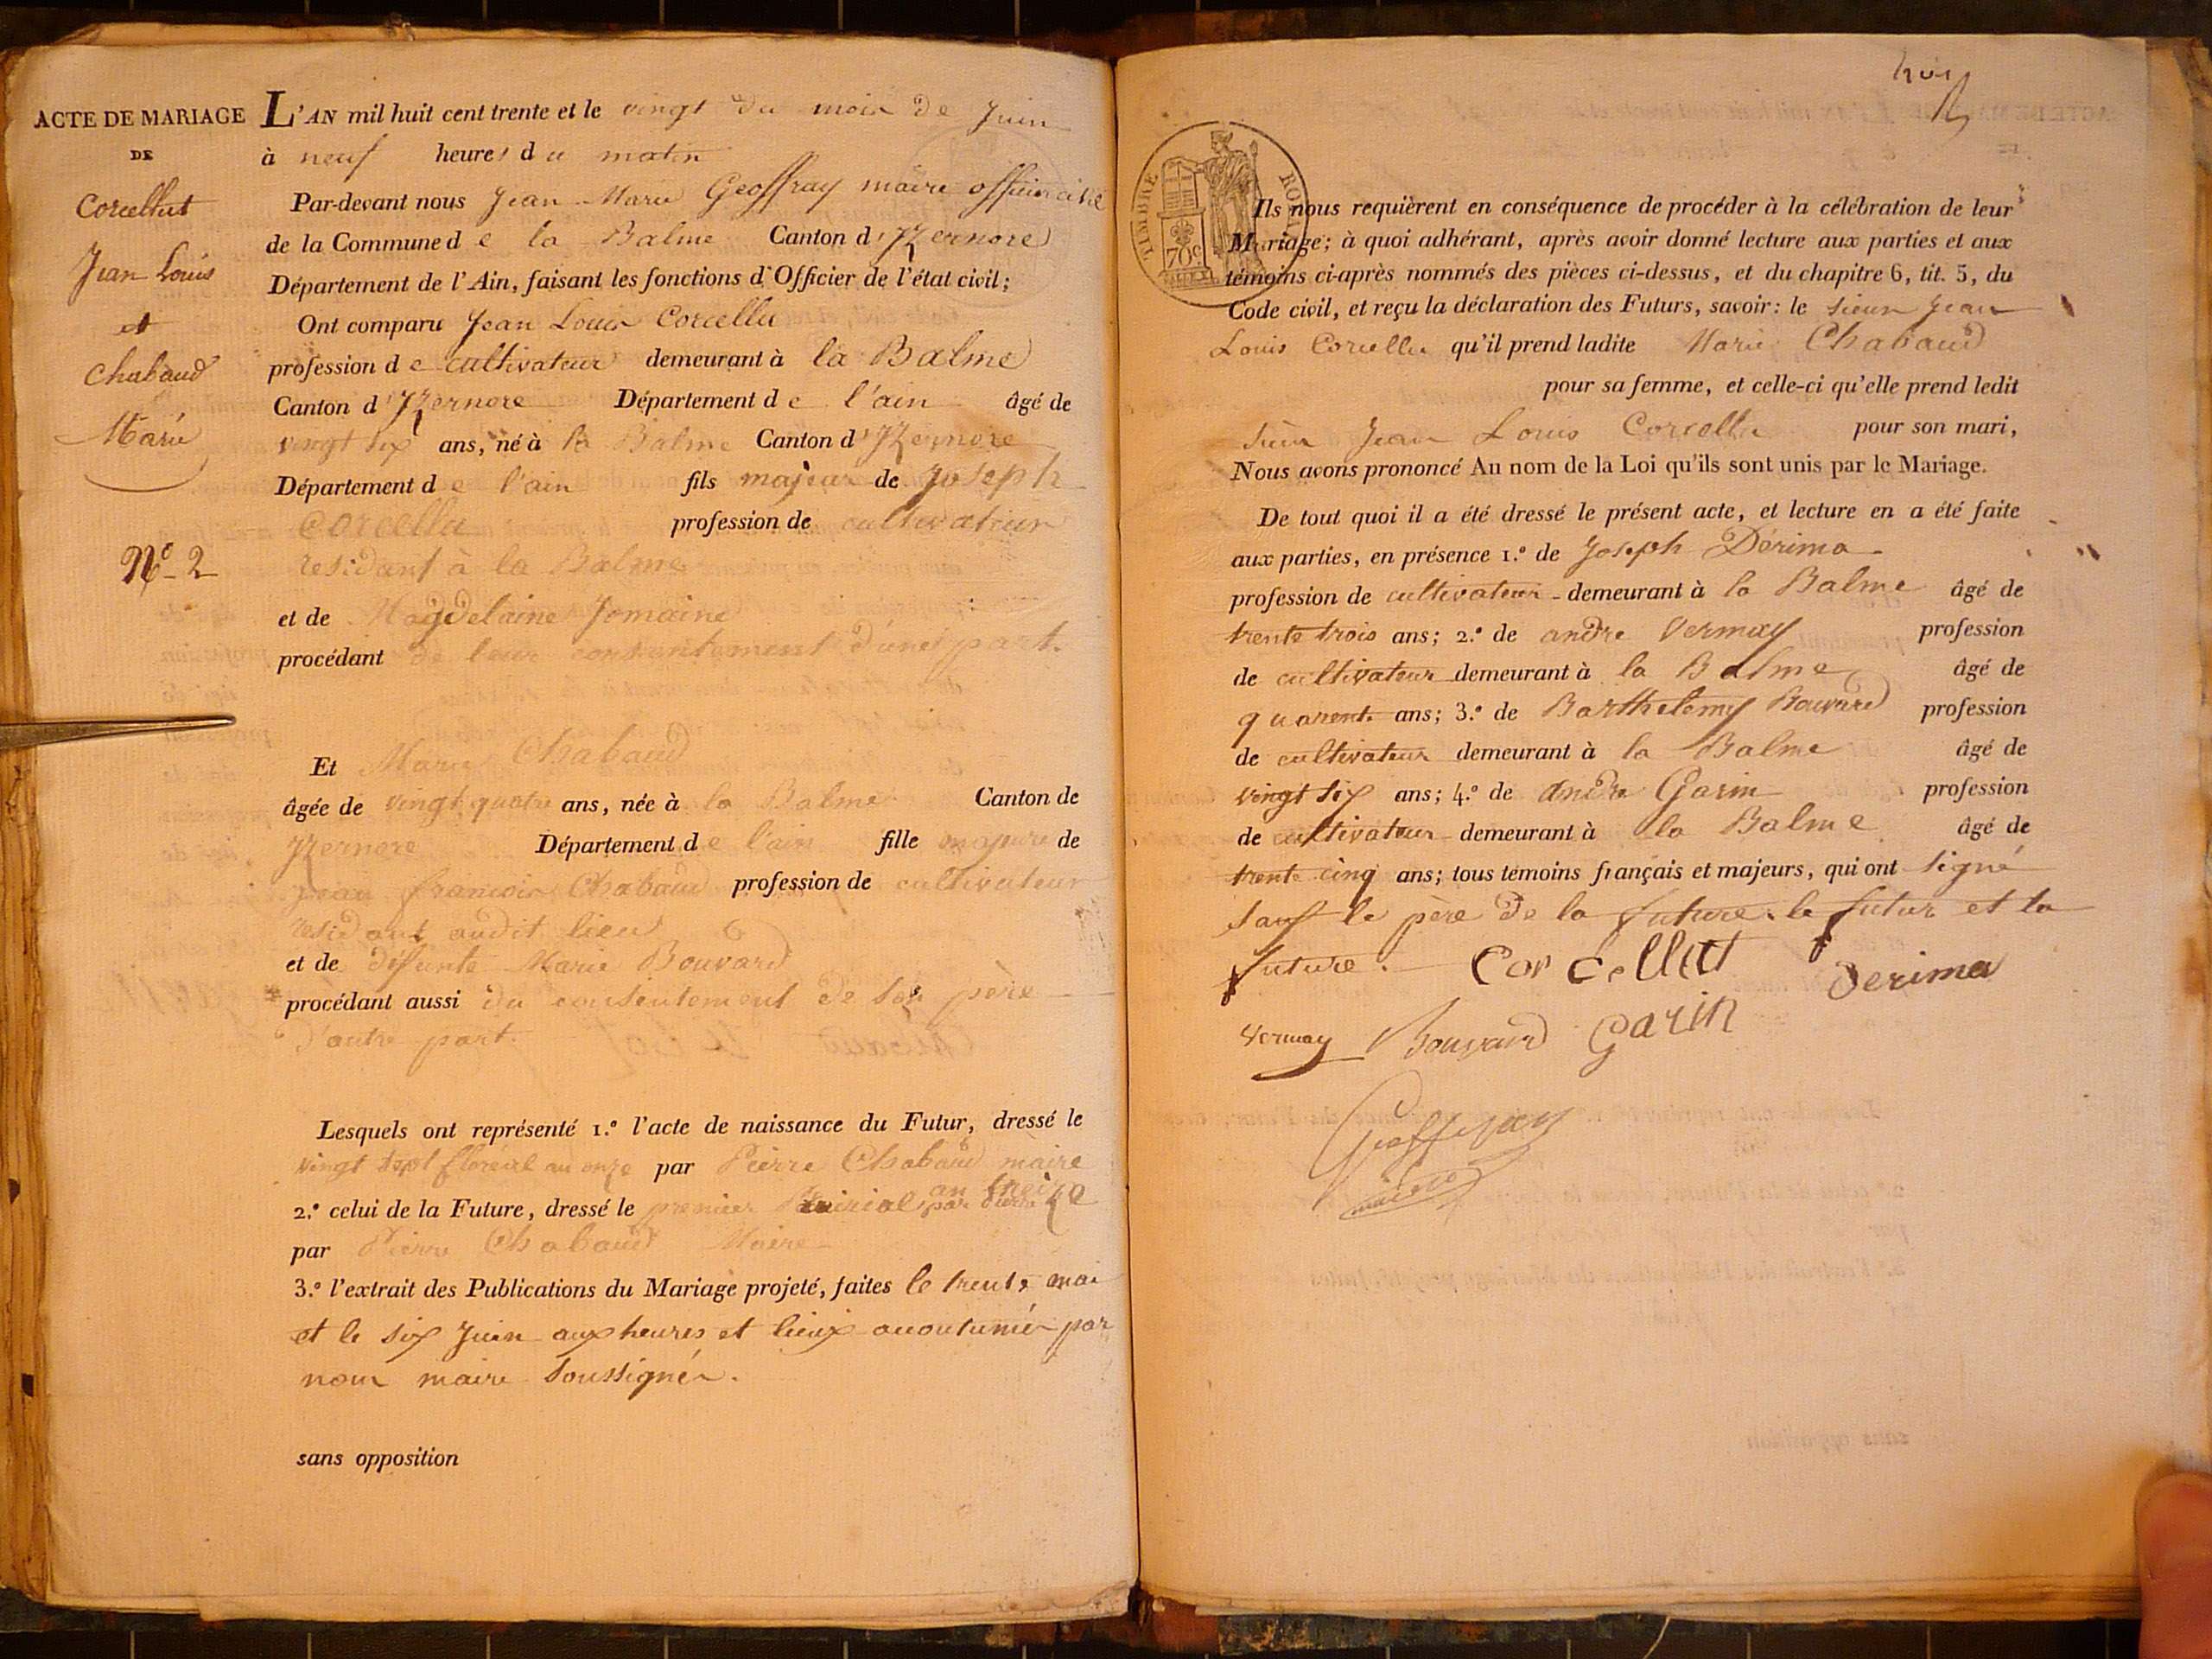 ACTE DE MARIAGE
DE
Corcellut
Jean Louis
et
Chabaud
Marie
N.º 2
L'AN mil huit cent trente et le vingt du mois de Juin
à neuf heures du matin
Par-devant nous Jean Marie Geoffray maire officier civil
de la Commune de la Balme Canton d'Izernore
Département de l'Ain, faisant les fonctions d'Officier de l'état civil;
Ont comparu Jean Louis Corcellu
profession de cultivateur demeurant à la Balme
Canton d'Izernore Département de l'ain âgé de
vingt six ans, né à la Balme Canton d'Izernore
Département de l'ain fils majeur de Joseph
Corcellu profession de cultivateur
residant à la Balme
et de Magdelaine Jomaine
procédant de leur consentement d'une part.
Et Marie Chabaud
âgée de vingt quatre ans, née à la Balme Canton de
Izernore Département de l'ain fille majeure de
jean francois Chabaud profession de cultivateur
residant audit lieu
et de défunte Marie Bouvard
procédant aussi du consentement de son père
d'autre part.
Lesquels ont représenté 1.º l'acte de naissance du Futur, dressé le
vingt sept floréal an onze par Pierre Chabaud maire
an treize
2.º celui de la Future, dressé le premier prairial par Pierre
par Pierre Chabaud Maire
3.º l'extrait des Publications du Mariage projeté, faites le trente mai
et le six Juin aux heures et lieux accoutumés par
nous maire soussignés.
sans opposition
TIMBRE ROYAL
70c
Ils nous requièrent en conséquence de procéder à la célébration de leur
Mariage; à quoi adhérant, après avoir donné lecture aux parties et aux
témoins ci-après nommés des pièces ci-dessus, et du chapitre 6, tit. 5, du
Code civil, et reçu la déclaration des Futurs, savoir: le sieur Jean
Louis Corcellu qu'il prend ladite Marie Chabaud
pour sa femme, et celle-ci qu'elle prend ledit
sieur Jean Louis Corcellu pour son mari,
Nous avons prononcé Au nom de la Loi qu'ils sont unis par le Mariage.
De tout quoi il a été dressé le présent acte, et lecture en a été faite
aux parties, en présence 1.º de Joseph Dérima
profession de cultivateur demeurant à la Balme âgé de
trente trois ans; 2.º de andre Vermay profession
de cultivateur demeurant à la Balme âgé de
quarente ans; 3.º de Barthelemy Bouvard profession
de cultivateur demeurant à la Balme âgé de
vingt six ans; 4.º de andre Garin profession
de cultivateur demeurant à la Balme âgé de
trente cinq ans; tous témoins français et majeurs, qui ont signé
sauf le père de la future. le futur et la
future. Corcellut Derima
Vermay Bouvard Garin
Geoffray
maire